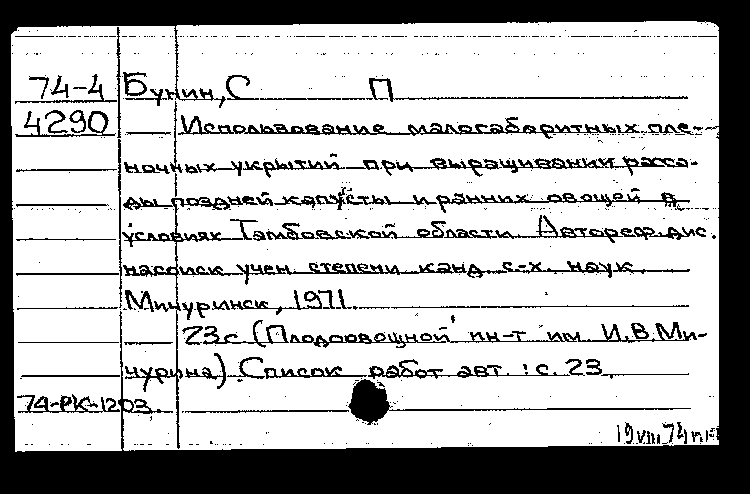 74-4 Бунин, С П
4290 Использование малогабаритных пле-
ночных укрытий при выращивании расса-
ды поздней капусты и ранних овощей в
условиях Тамбовской области Автореф. дис.
на соиск учен. степени канд с-х. наук.
Мичуринск, 1971
23 с (Плодоовощной ин-т им И.В. Ми-
чурина). Список работ авт. : с. 23.
74-РК-1203.
19 VIII 74